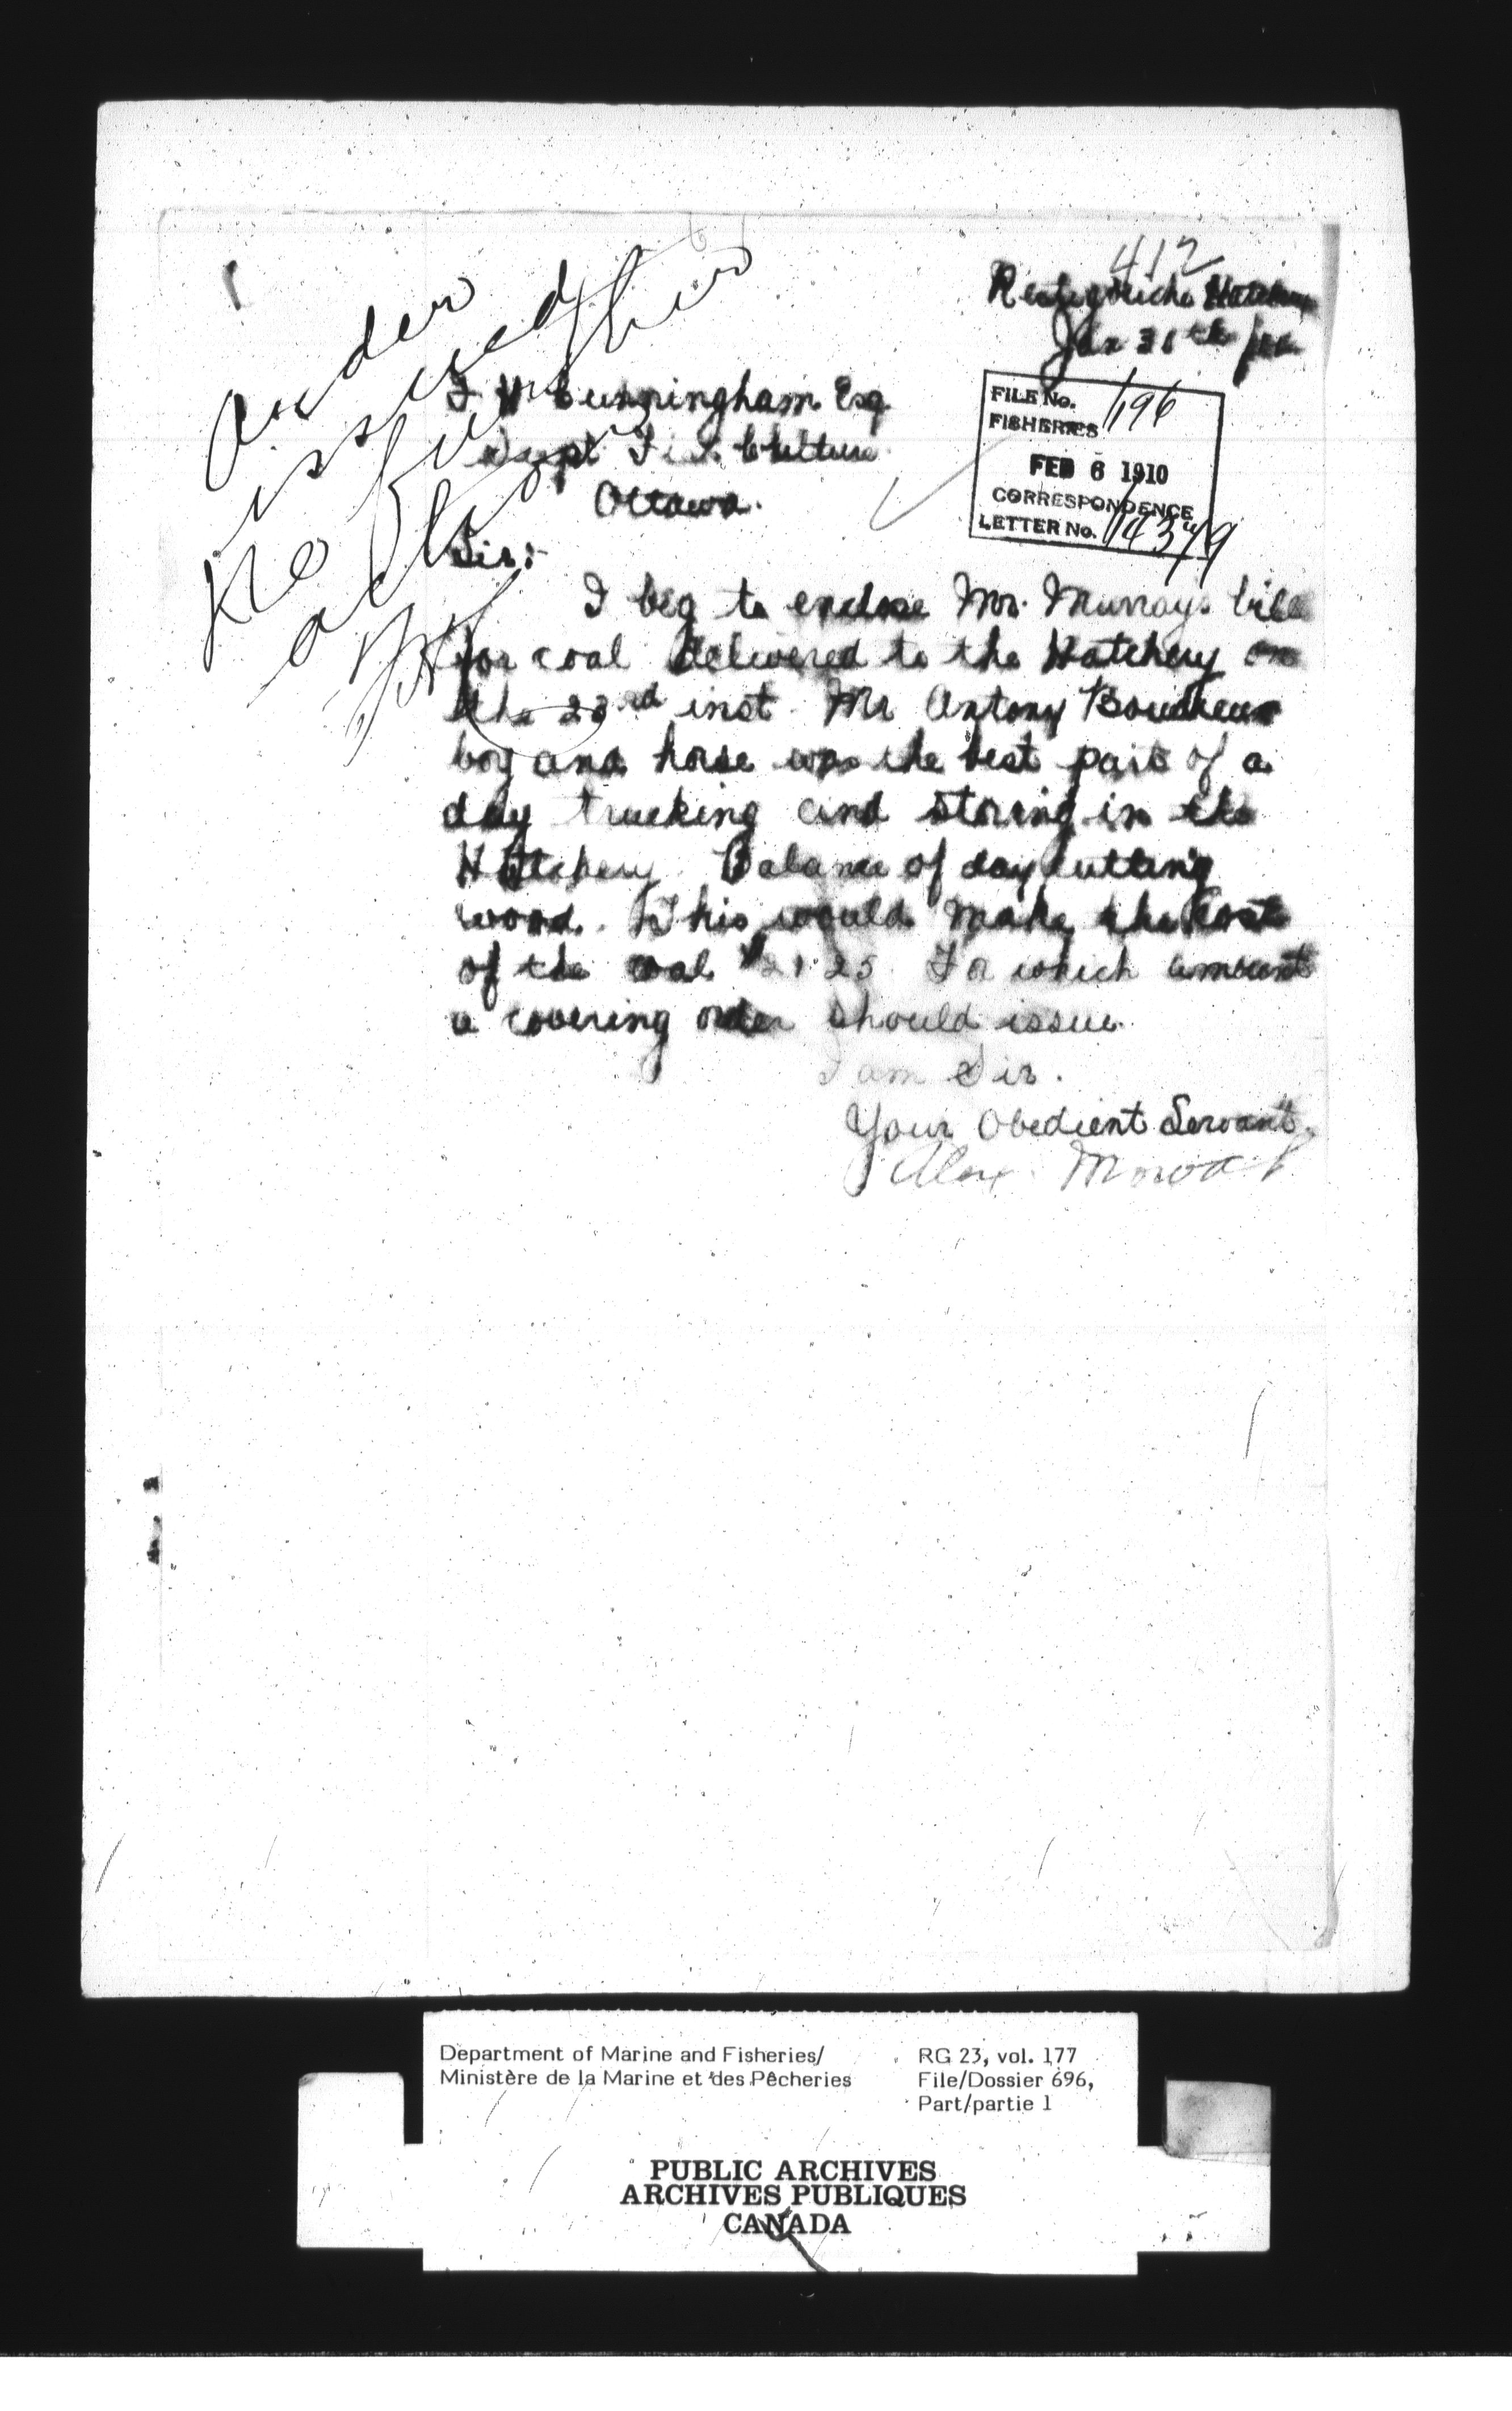 412
Restigouche Hatchery
Jan 31st
F H Cunningham Esq
Supt Fish Culture
Ottawa.
Order
issued
No further
action
FILE No. 196
FISHERIES
FEB 6 1910
CORRESPONDENCE
LETTER No. 14379
Sir:-
I beg to enclose Mr. Murrays bill
for coal delivered to the Hatchery on
the 23rd inst. Mr Antony
boy and horse was the best part of a
day trucking and storing in the
Hatchery Balance of day cutting
wood. This would make the cost
of the coal $21.25 For which amount
a covering order should issue.
I am Sir.
Your Obedient Servant.
Alex. Mowat
Department of Marine and Fisheries/
Ministère de la Marine et des Pêcheries
RG 23, vol. 177
File/Dossier 696,
Part/partie 1
PUBLIC ARCHIVES
ARCHIVES PUBLIQUES
CANADA